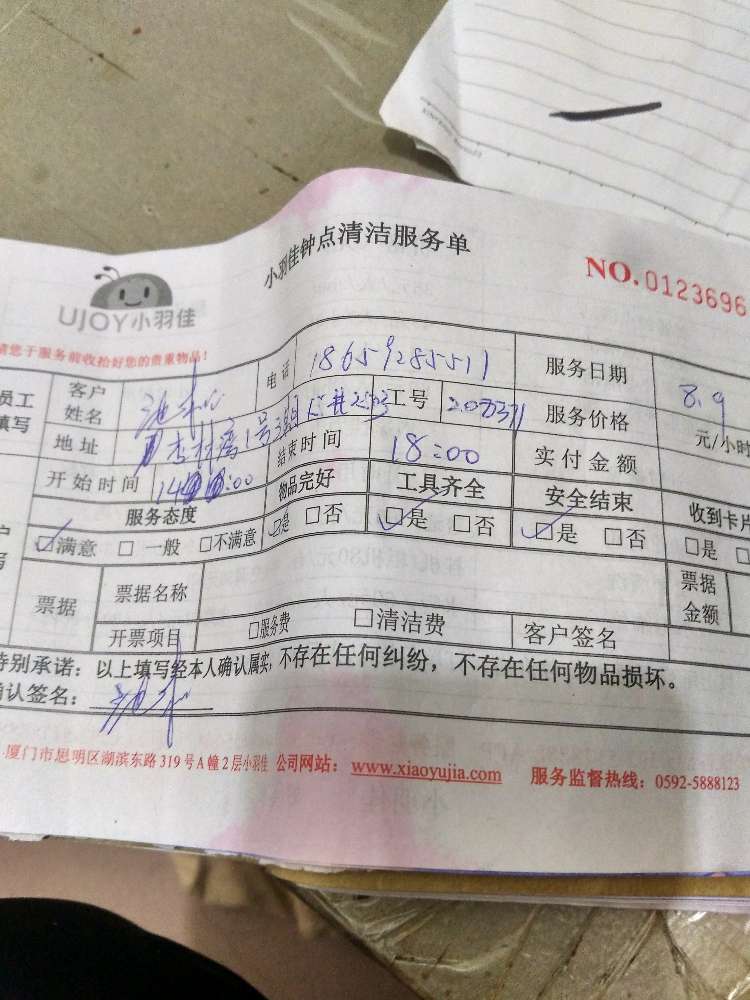 小羽佳钟点清洁服务单
NO.0123696
UJOY小羽佳
请您于服务前收拾好您的贵重物品！
员工填写 客户姓名 电话 18659285511 服务日期 8.9
地址 1号 工号 服务价格 元/小时
开始时间 14:00 结束时间 18:00 实付金额
服务态度 物品完好 工具齐全 安全结束 收到卡片
☑满意 □一般 □不满意 ☑是 □否 ☑是 □否 ☑是 □否 □是
票据 票据名称 票据金额
开票项目 □服务费 □清洁费 客户签名
特别承诺：以上填写经本人确认属实，不存在任何纠纷，不存在任何物品损坏。
确认签名：
厦门市思明区湖滨东路319号A幢2层小羽佳 公司网站：www.xiaoyujia.com 服务监督热线：0592-5888123